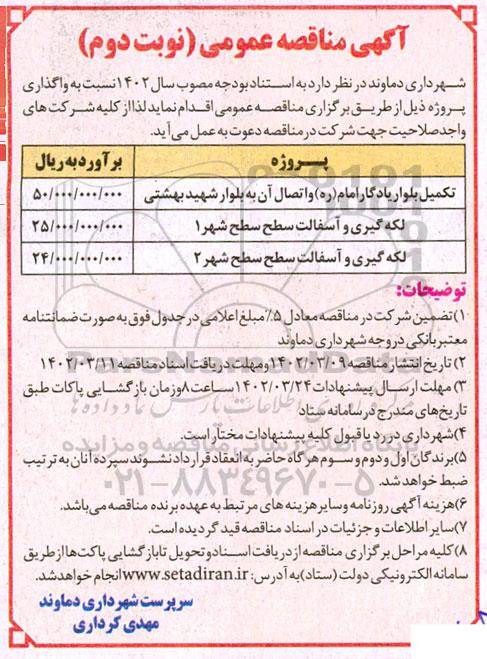 آگهی مناقصه عمومی (نوبت دوم)
شهرداری دماوند در نظر دارد به استناد بودجه مصوب سال ۱۴۰۲ نسبت به واگذاری
پروژه ذیل از طریق برگزاری مناقصه عمومی اقدام نماید لذا از کلیه شرکت های
واجد صلاحیت جهت شرکت در مناقصه دعوت به عمل می آید.
پروژه برآورد به ریال
تکمیل بلوار یادگار امام (ره) و اتصال آن به بلوار شهید بهشتی ۵۰/۰۰۰/۰۰۰/۰۰۰
لکه گیری و آسفالت سطح سطح شهر ۱ ۲۵/۰۰۰/۰۰۰/۰۰۰
لکه گیری و آسفالت سطح سطح شهر ۲ ۲۴/۰۰۰/۰۰۰/۰۰۰
توضیحات:
۱) تضمین شرکت در مناقصه معادل ۵٪ مبلغ اعلامی در جدول فوق به صورت ضمانتنامه
معتبر بانکی در وجه شهرداری دماوند
۲) تاریخ انتشار مناقصه ۱۴۰۲/۰۳/۰۹ و مهلت دریافت اسناد مناقصه ۱۴۰۲/۰۳/۱۱
۳) مهلت ارسال پیشنهادات ۱۴۰۲/۰۳/۲۴ ساعت ۸ و زمان بازگشایی پاکات طبق
تاریخ های مندرج در سامانه ستاد
۴) شهرداری در رد یا قبول کلیه پیشنهادات مختار است.
۵) برندگان اول و دوم و سوم هرگاه حاضر به انعقاد قرارداد نشوند سپرده آنان به ترتیب
ضبط خواهد شد.
۶) هزینه آگهی روزنامه و سایر هزینه های مرتبط به عهده برنده مناقصه می باشد.
۷) سایر اطلاعات و جزئیات در اسناد مناقصه قید گردیده است.
۸) کلیه مراحل برگزاری مناقصه از دریافت اسناد و تحویل تا بازگشایی پاکت ها از طریق
سامانه الکترونیکی دولت (ستاد) به آدرس: www.setadiran.ir انجام خواهد شد.
سرپرست شهرداری دماوند
مهدی کرداری
۰۲۱-۸۸۳۴۹۶۷۰-۵